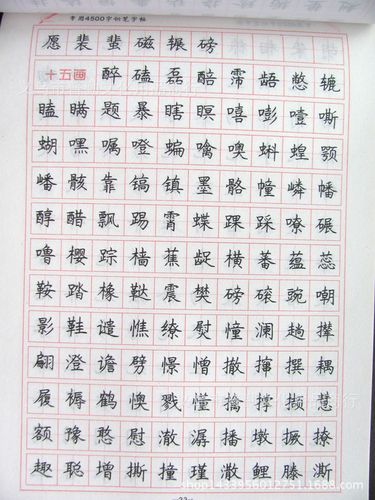 常用4500字钢笔字帖
愿裴蜚磁辗磅
十五画 醉磕磊醅霈龉憋辘
瞌瞒题暴瞎瞑嘻嘭噎嘶
蝴嘿嘱噔蝙噙噢蝌蝗颚
嶓骸靠镐镇墨骼幢嶙幡
醇醋飘踢霄蝶踝踩嘹碾
噜樱踪樯蕉龊横蕃蕴蕊
鞍踏橡鞑震樊磅磙豌嘲
影鞋谴憔缭熨憧澜趟撵
翩澄谵劈憬憎撤撺撰耦
履褥鹤懊戮懂擒撑撷慧
额豫憨慰澈潺播墩撅撩
趣聪增撕撞瑾澈鲤滕澌
shop1433956012751.1688.com